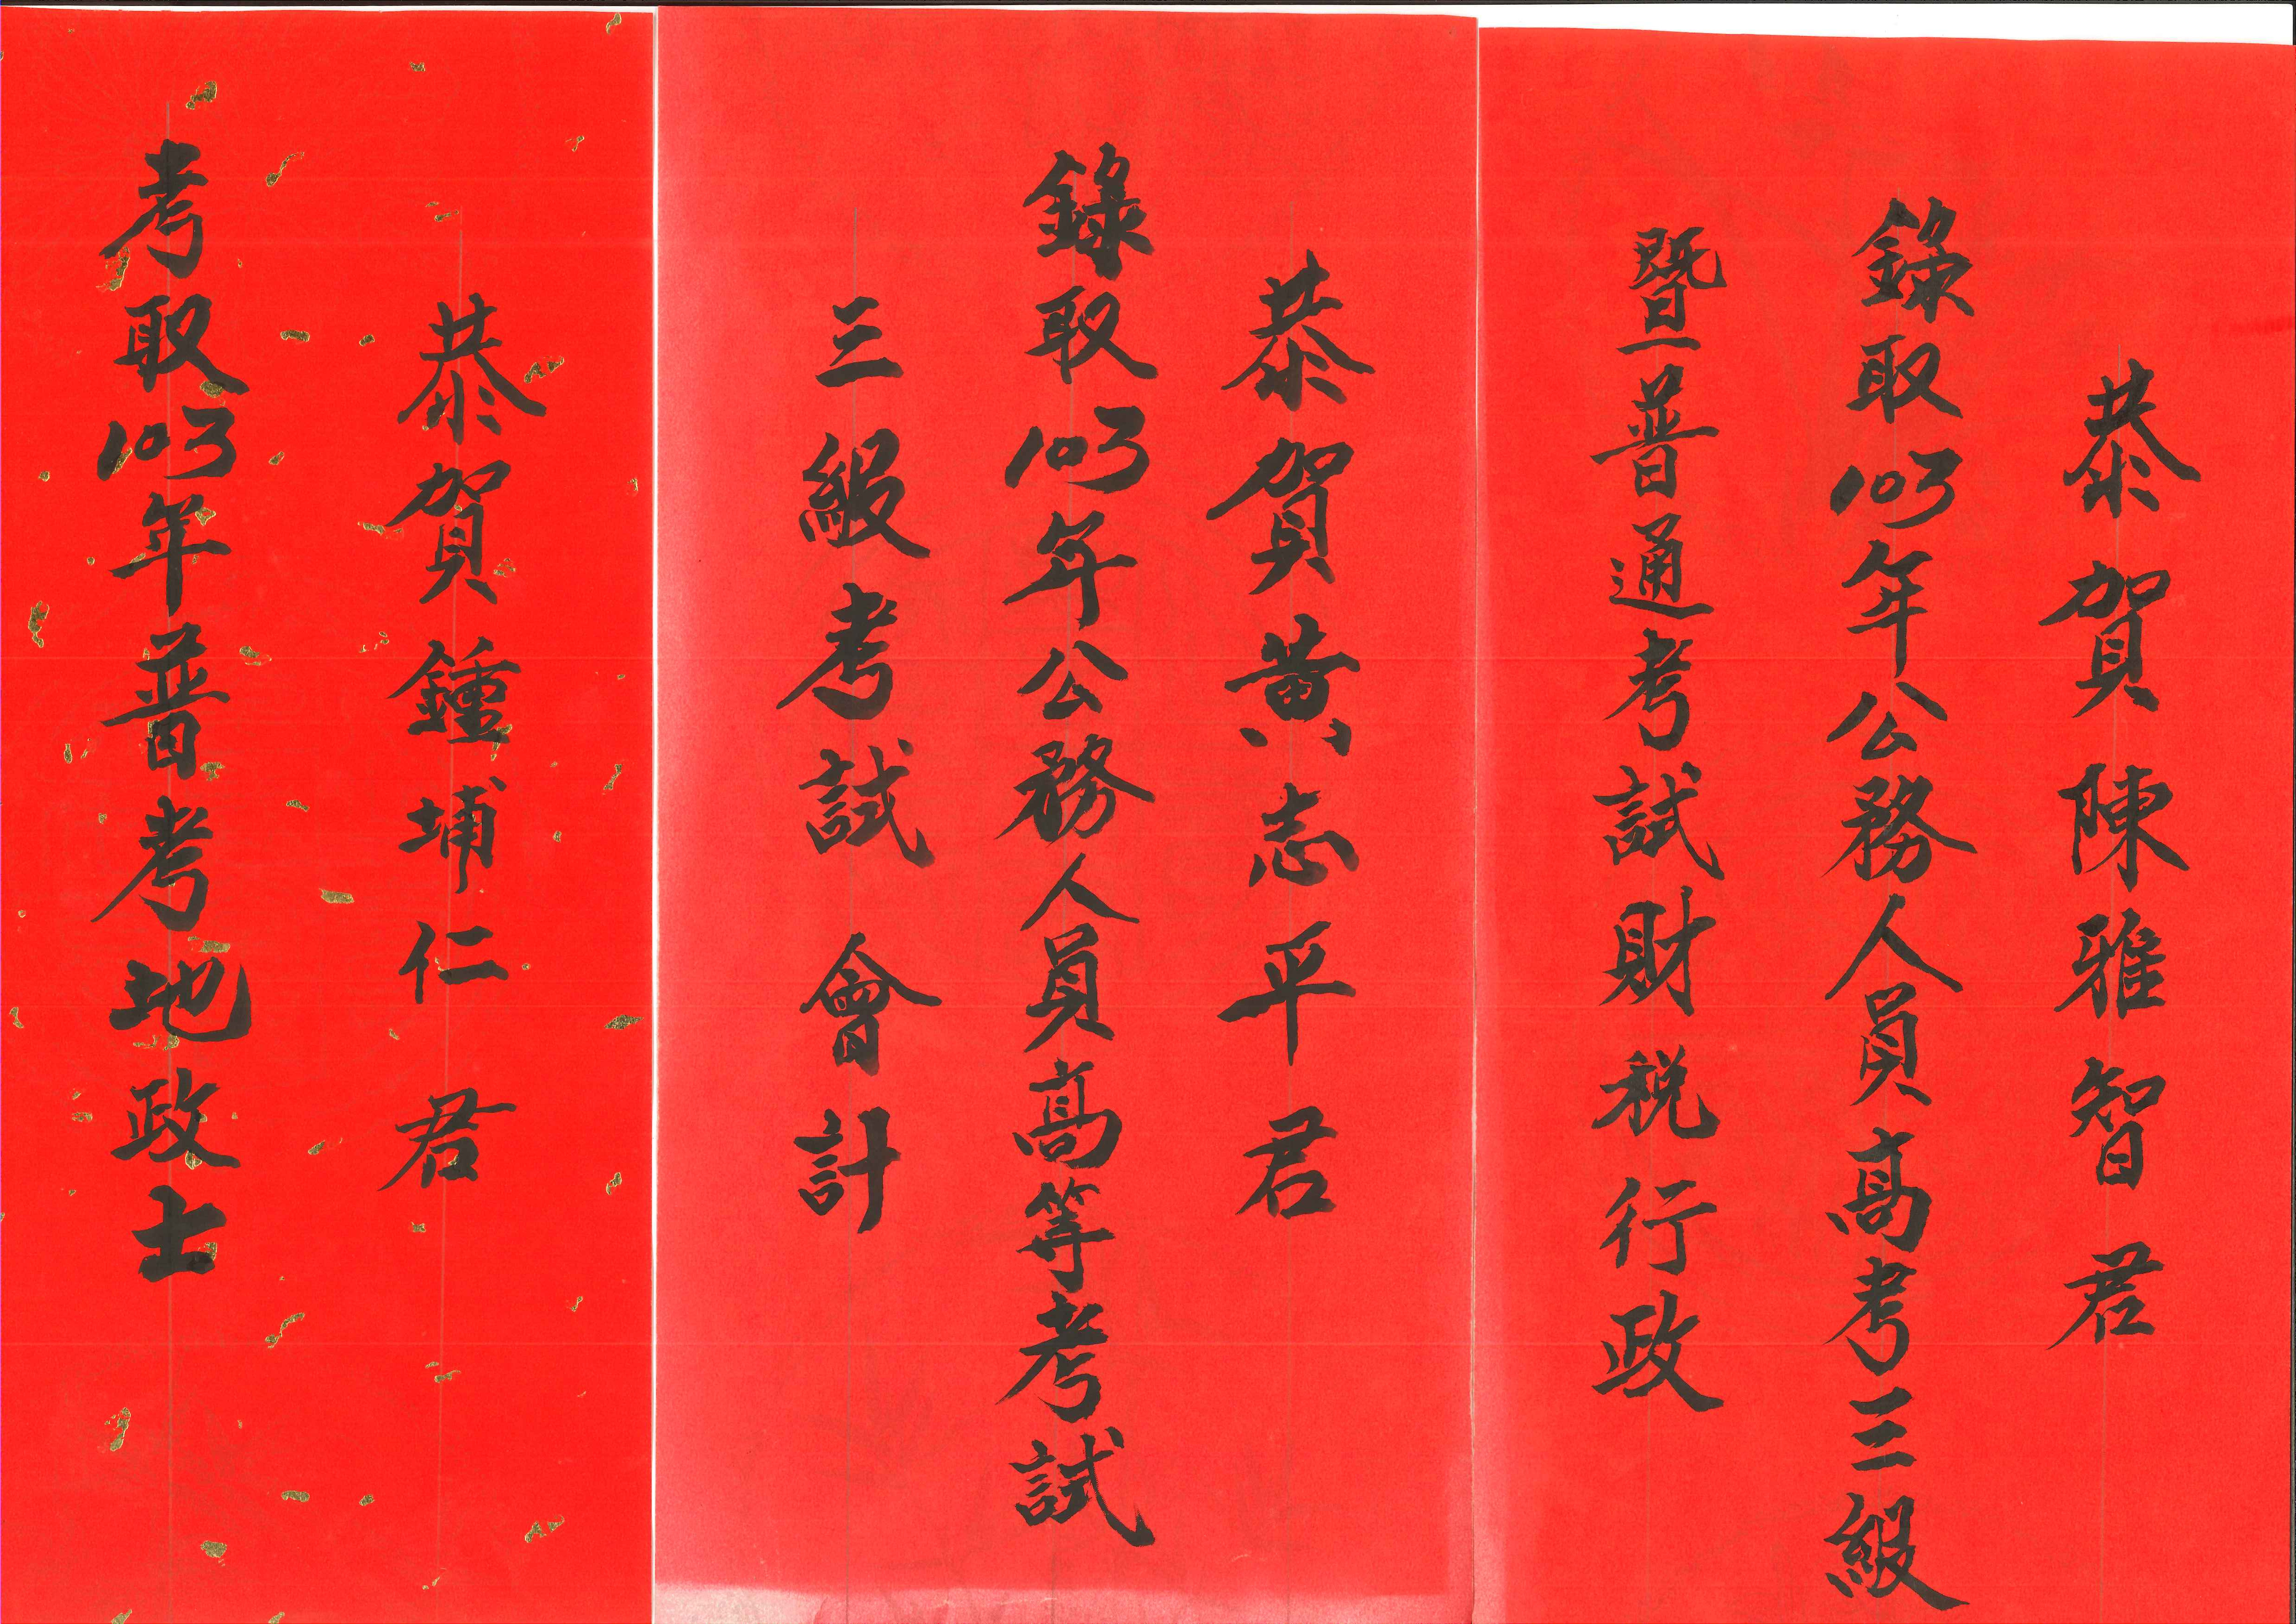 恭賀陳雅智君
錄取103年公務人員高考三級
暨普通考試財稅行政
恭賀黃志平君
錄取103年公務人員高等考試
三級考試會計
恭賀鍾埔仁君
考取103年普考地政士